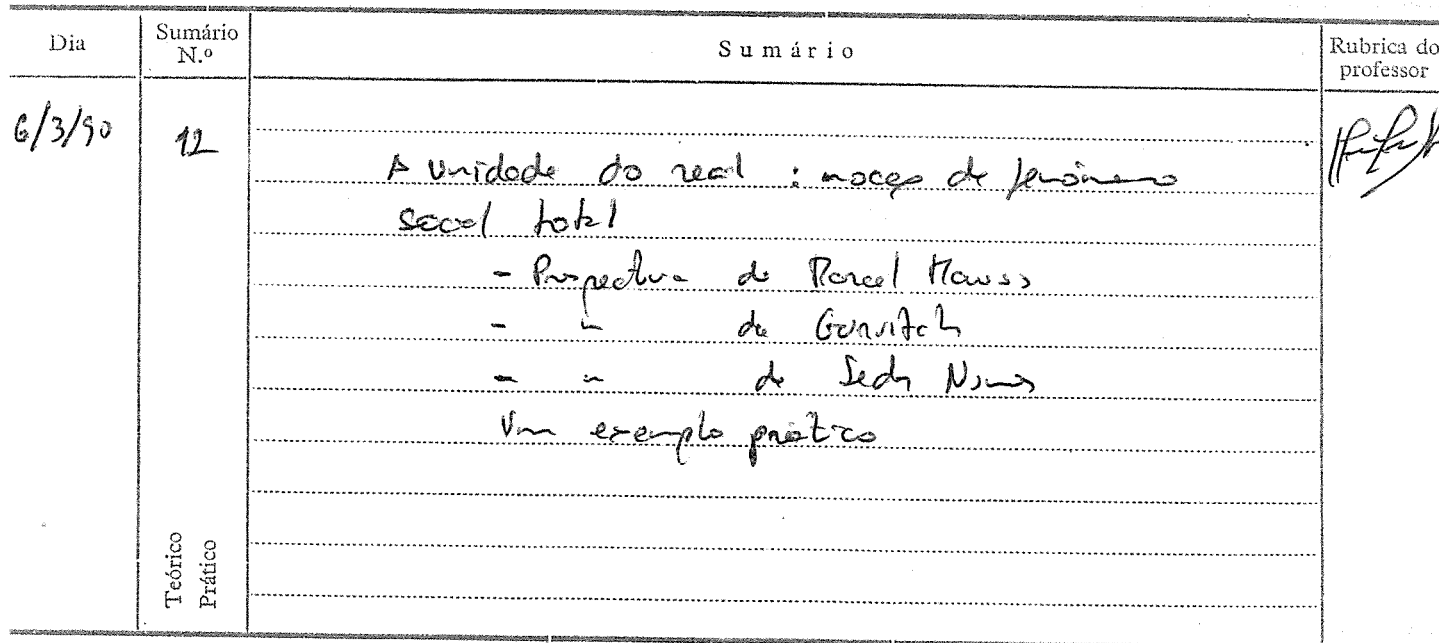 Dia Sumário N.º Sumário Rubrica do professor
6/3/90 12
A unidade do real : noção de fenómeno
social total
- Perspectiva de Marcel Mauss
- " de Gurvitch
- " de Sedas Nunes
Um exemplo prático
Teórico
Prático